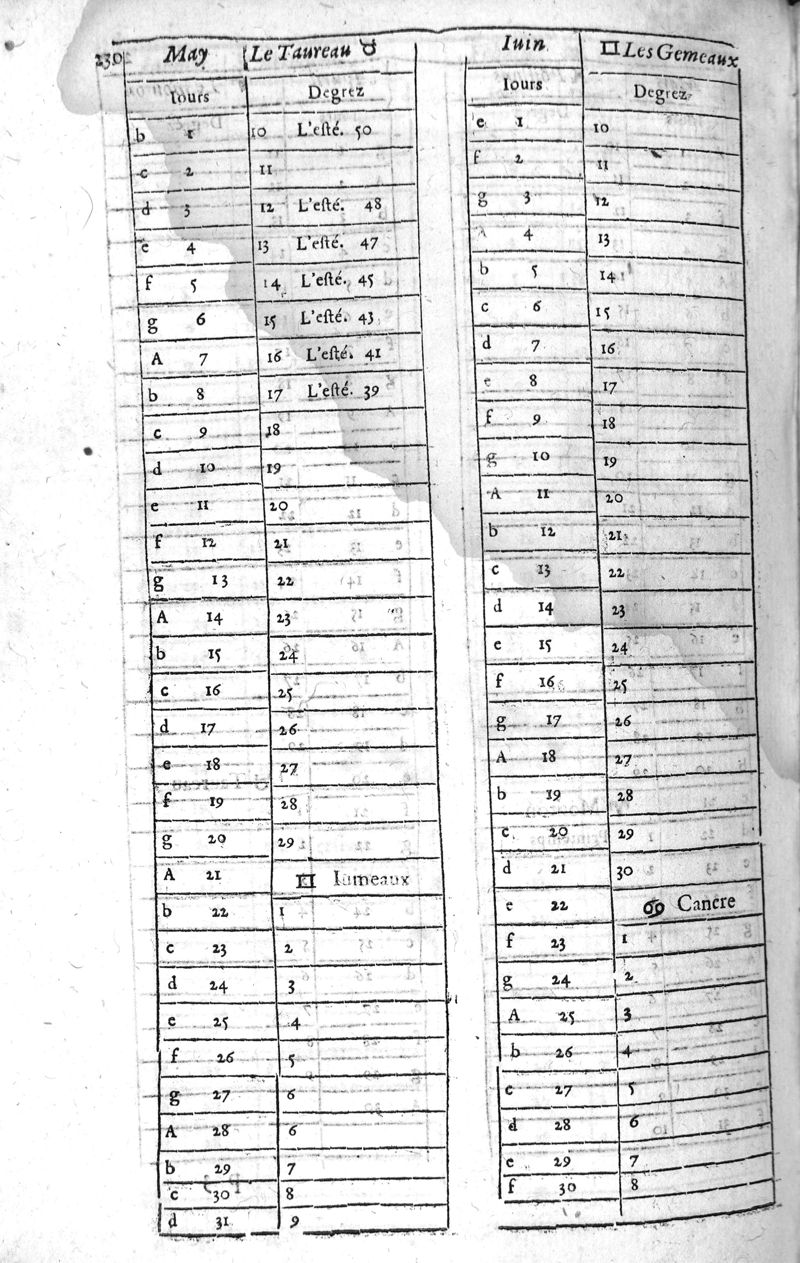 230
May Le Taureau ♉
Iours Degrez
b 1 10 L'eſté. 50
c 2 11
d 3 12 L'eſté. 48
e 4 13 L'eſté. 47
f 5 14 L'eſté. 45
g 6 15 L'eſté. 43
A 7 16 L'eſté. 41
b 8 17 L'eſté. 39
c 9 18
d 10 19
e 11 20
f 12 21
g 13 22
A 14 23
b 15 24
c 16 25
d 17 26
e 18 27
f 19 28
g 20 29
A 21 ♊ Iumeaux
b 22 1
c 23 2
d 24 3
e 25 4
f 26 5
g 27 6
A 28 6
b 29 7
c 30 8
d 31 9
Iuin ♊ Les Gemeaux
Iours Degrez
e 1 10
f 2 11
g 3 12
A 4 13
b 5 14
c 6 15
d 7 16
e 8 17
f 9 18
g 10 19
A 11 20
b 12 21
c 13 22
d 14 23
e 15 24
f 16 25
g 17 26
A 18 27
b 19 28
c 20 29
d 21 30
e 22 ♋ Cancre
f 23 1
g 24 2
A 25 3
b 26 4
c 27 5
d 28 6
e 29 7
f 30 8